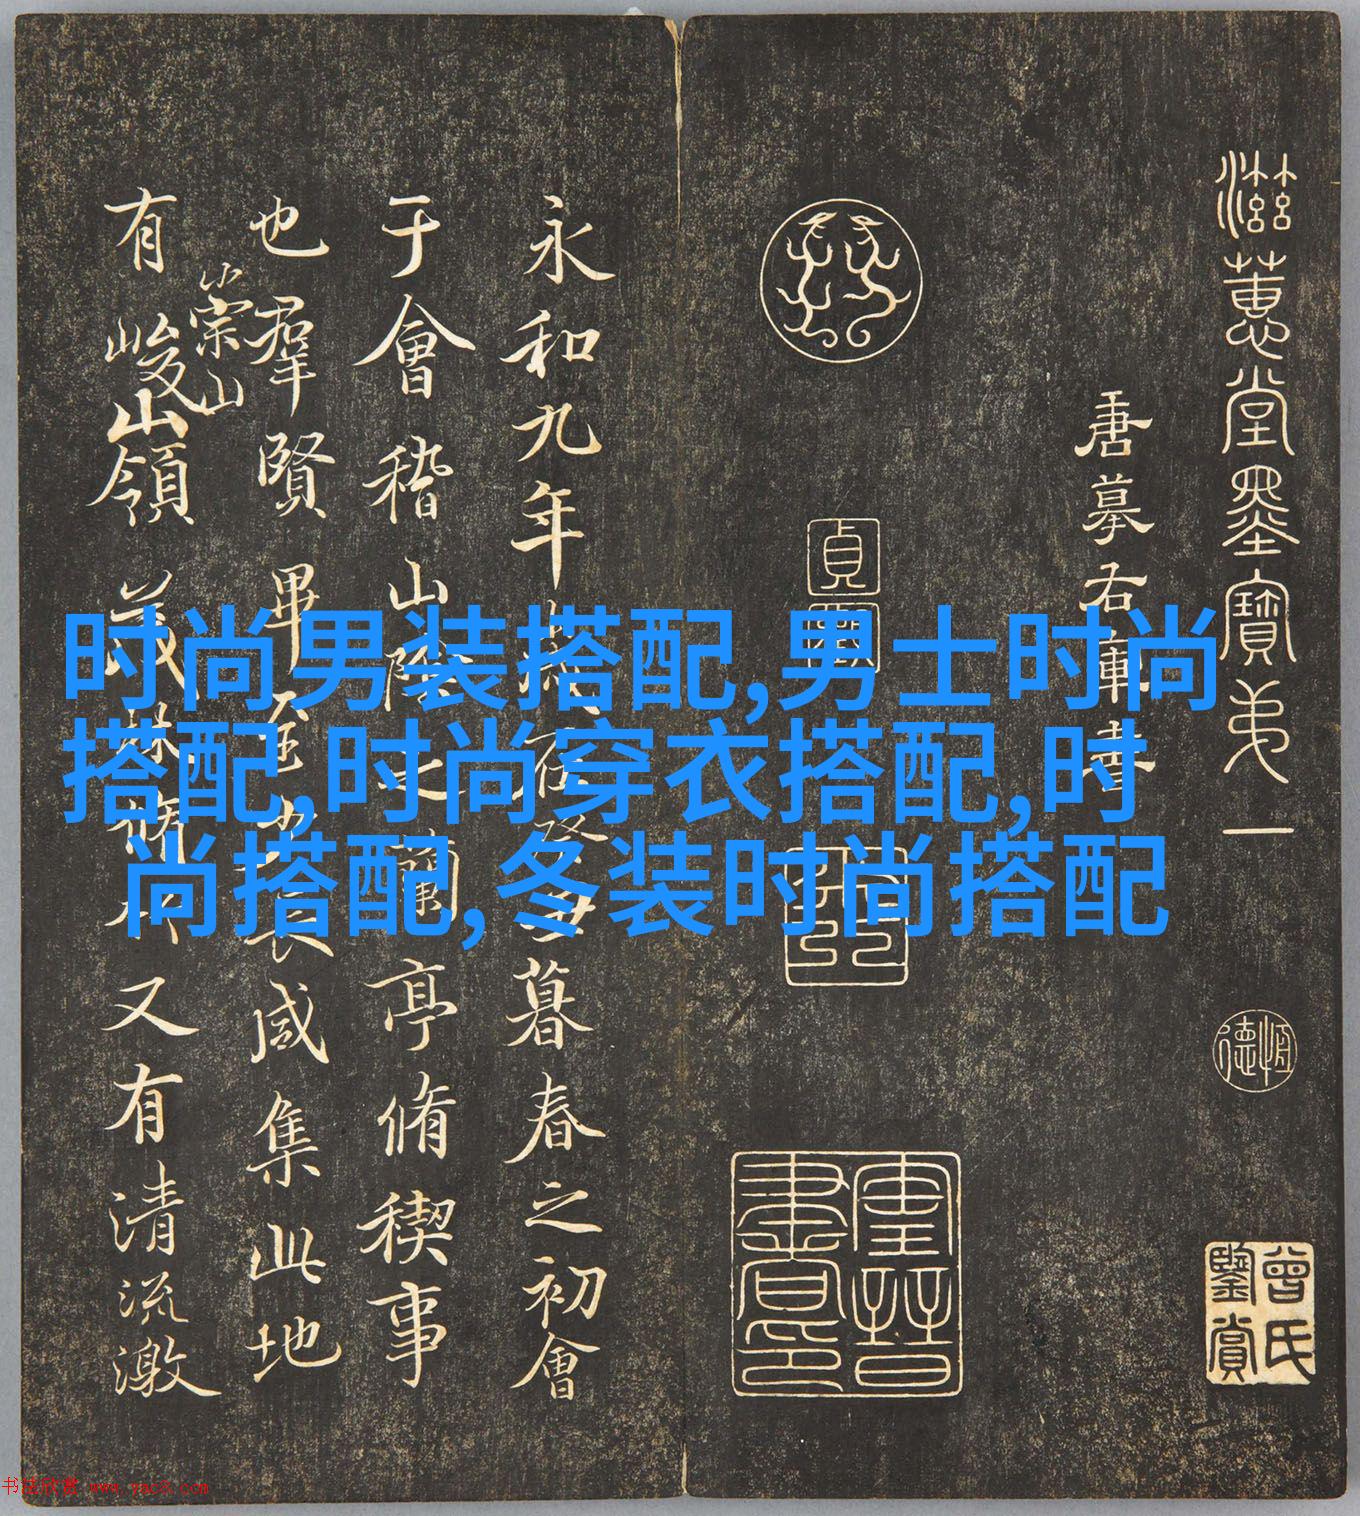 滋蕙堂墨寶弟一
唐摹右軍書
恒德
曾氏鑒賞
貞觀
永和九年歲在癸丑暮春之初會
于會稽山陰之蘭亭脩稧事
也羣賢畢至少長咸集此地
有崇山
峻山領茂林脩竹又有清流激
时尚男装搭配,男士时尚
搭配,时尚穿衣搭配,时
尚搭配,冬装时尚搭配
书法欣赏 www.yac8.com